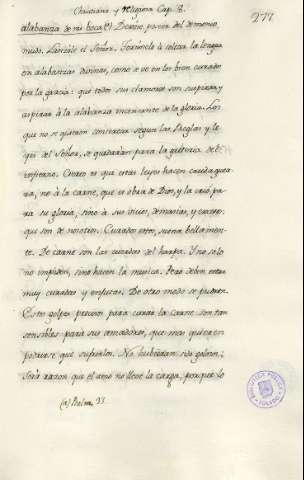 Christiana y Religiosa Cap. 8.
277
alabanza de mi boca (a) Demos, pavor del demonio
mudo. Lanzole el Señor. Tornosele à soltar la lengua
en alabanzas divinas, como se ve en los bien curados
por la gracia: que todos sus clamores son suspirar, y
aspirar à la alabanza incesante de la gloria. Los
que no se quieren concertar segun las Reglas y le-
yes del Señor, se quedaràn para la griteria del
infierno. Claro es que estas leyes hacen cruda guer-
ra, no à la carne, que es obra de Dios, y la criò pa
ra su gloria, sino à sus vicios, demasias, y excesos
que son de nosotros. Curados estos, suena bellamen-
te. De carne son las cuerdas del harpa. Y no solo
no impiden, sino hacen la musica. Pero deben estar
muy curadas y enjutas. De otro modo se pudren.
Estos golpes precisos para curar la carne son tan
sensibles para sus amadores, que mas quieren
podrirse que sufrirlos. No hubieran sido golosos;
Serà razon que el amo no lleve la carga, porque lo
(a) Psalm. 33.
BIBLIOTECA PUBLICA
TOLEDO